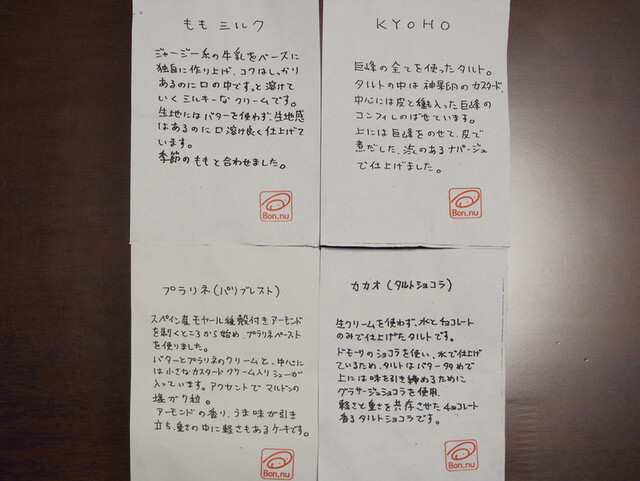 ももミルク
ジャージー系の牛乳をベースに
独自に作り上げ、コクはしっかり
あるのに口の中ですっと溶けて
いくミルキーなクリームです。
生地にはバターを使わず、生地感
はあるのに口溶け良く仕上げて
います。
季節のももと合わせました。
Bon.nu
KYOHO
巨峰の全てを使ったタルト。
タルトの中は神果卵のカスタード、
中心には皮と種入った巨峰の
コンフィしのばせています。
上には巨峰をのせて、皮で
煮だした、渋のあるナパージュ
で仕上げました。
Bon.nu
プラリネ(パリブレスト)
スペイン産モヤール種殻付きアーモンド
を剥くところから始め、プラリネペースト
を使りました。
バターとプラリネのクリームと、中心に
は小さなカスタードクリーム入りシューが
入っています。アクセントでマルドンの
塩が7粒。
アーモンドの香り、うま味が引き
立ち、重さの中に軽さもあるケーキです。
Bon.nu
カカオ(タルトショコラ)
生クリームを使わず、水とチョコレート
のみで仕上げたタルトです。
ドモーリのショコラを使い、水で仕上げ
ているため、タルトはバター多めで
上には味を引き締めるために
グラサージュショコラを使用。
軽さと重さを共存させたチョコレート
香るタルトショコラです。
Bon.nu